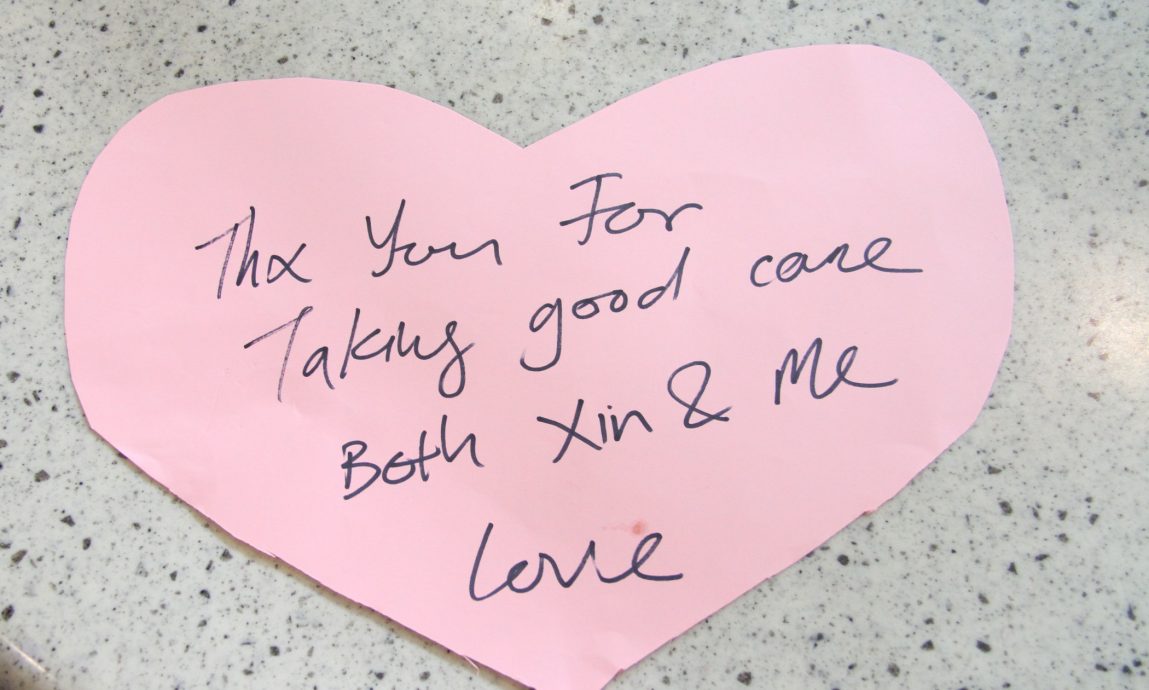 Thx You For
Taking good care
Both Xin & Me
Love